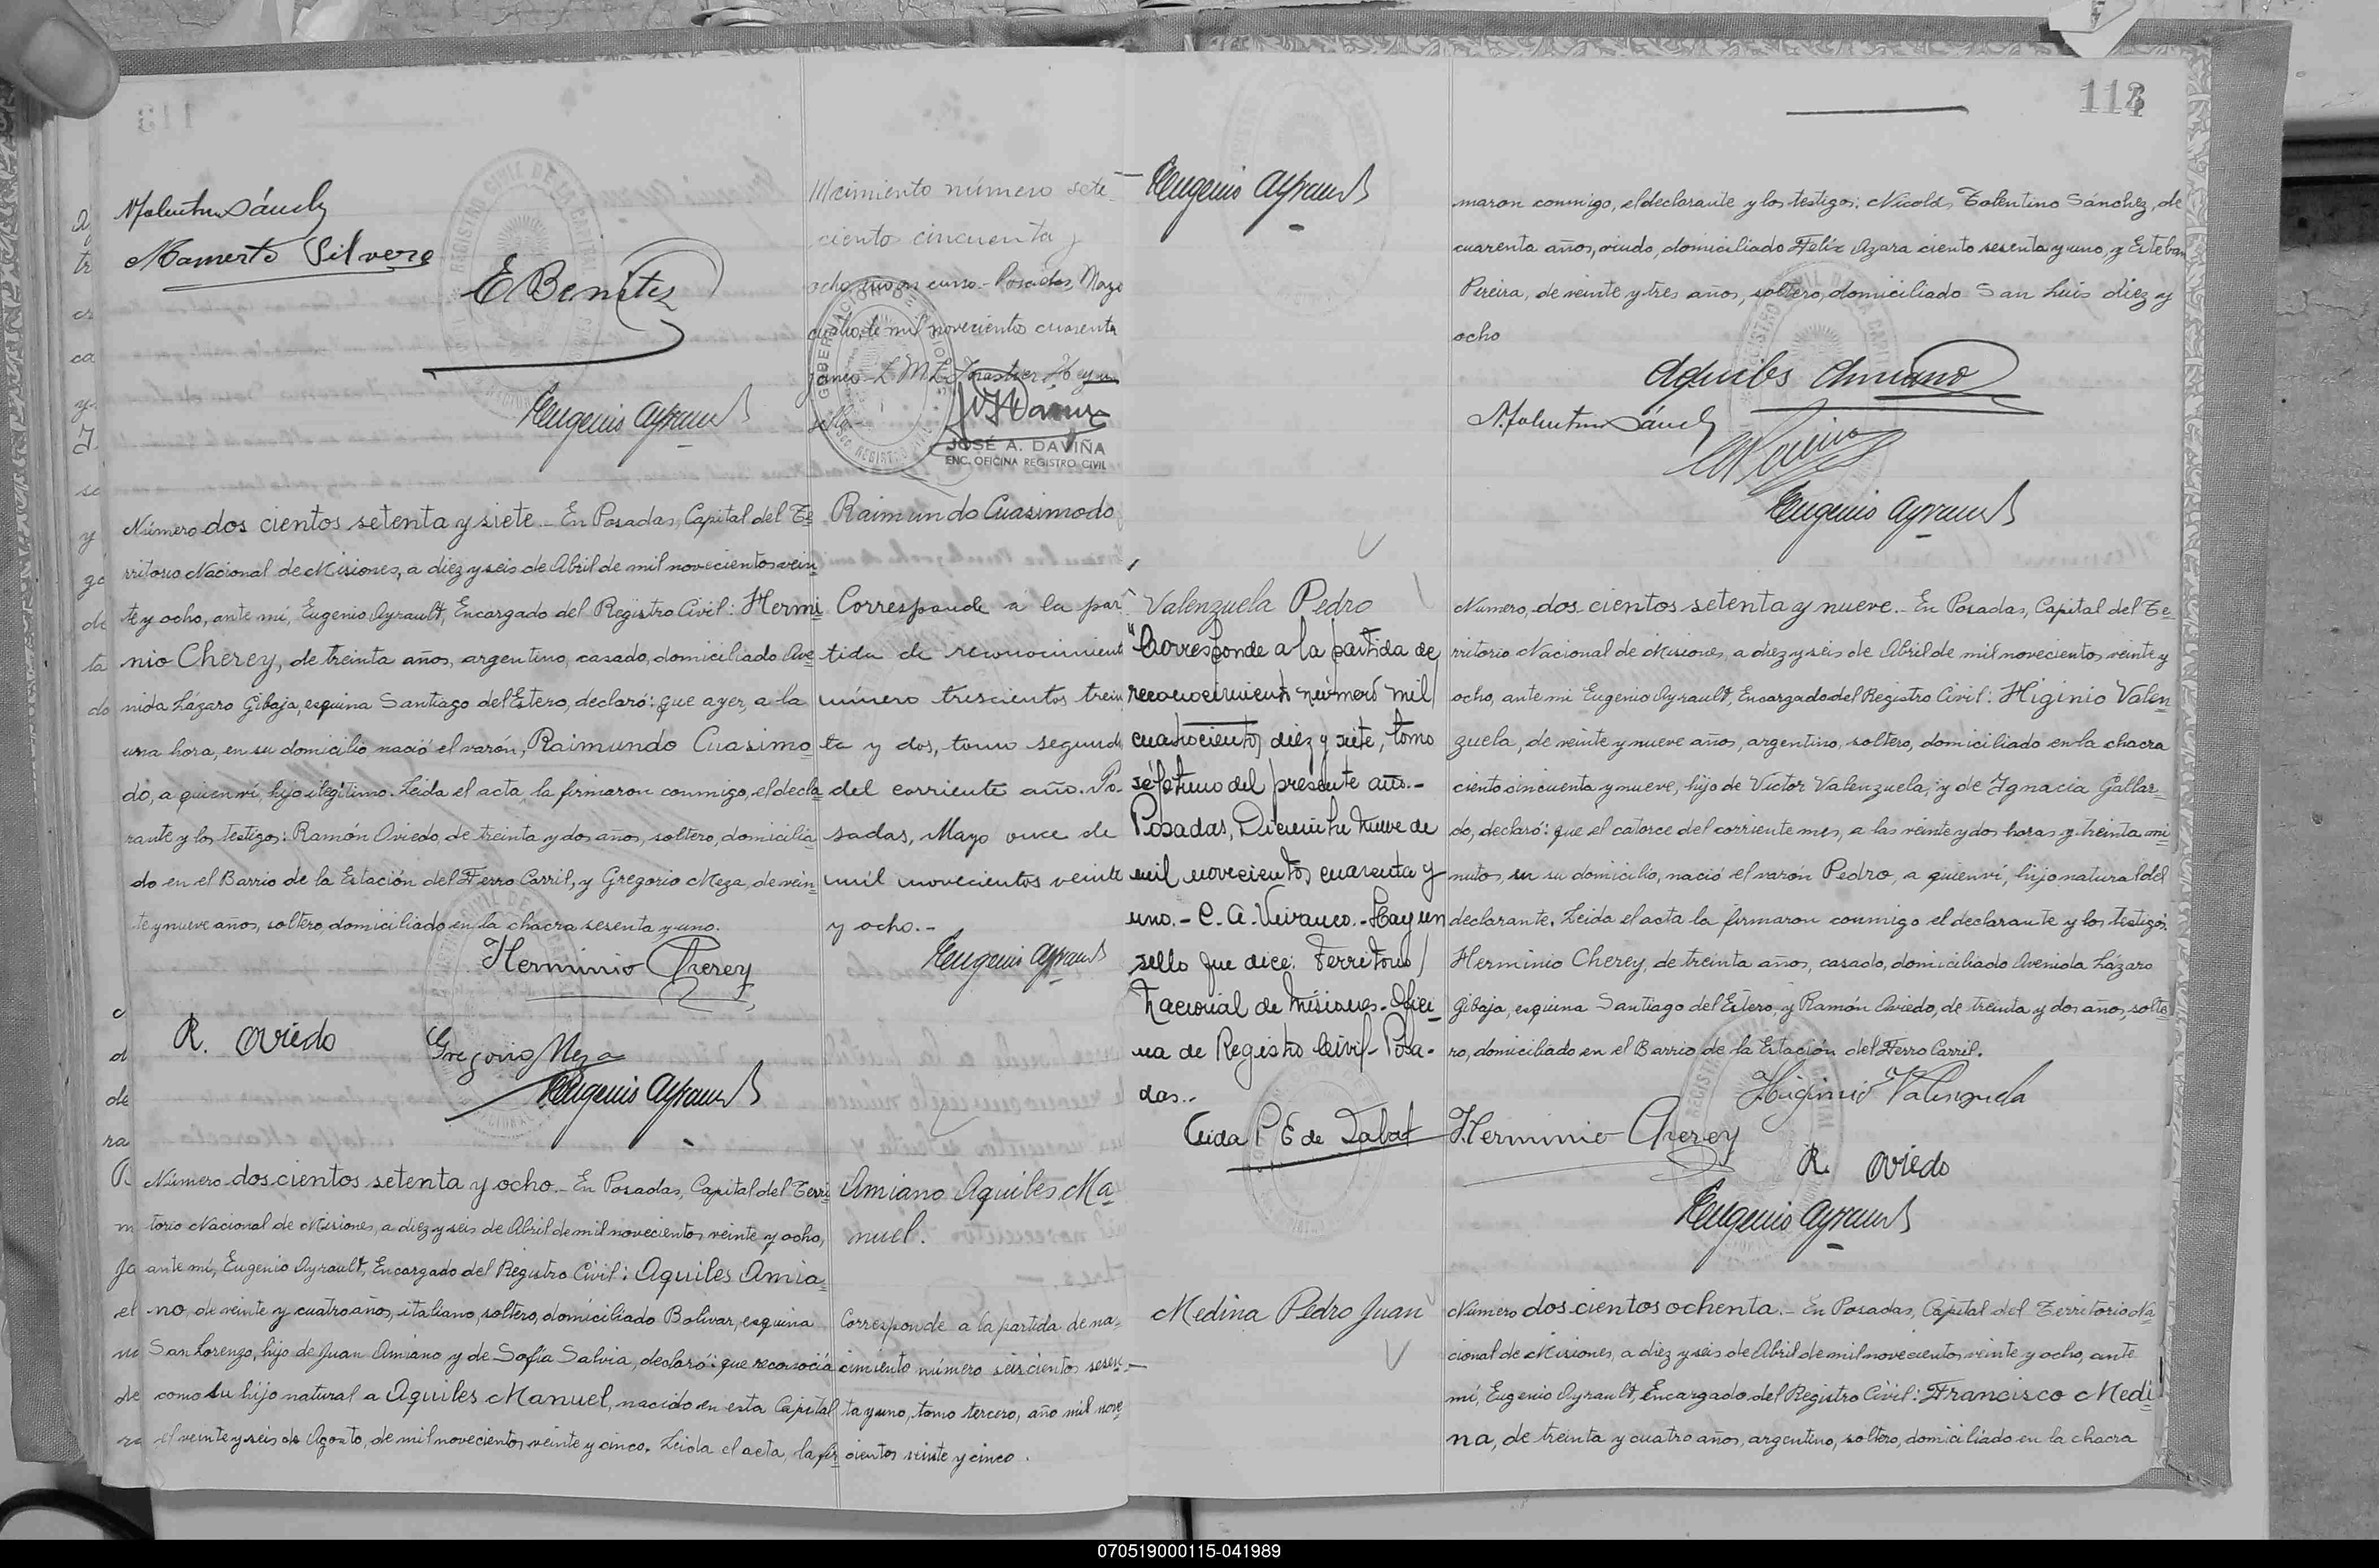 N. Tolentino Sánchez
Mamerto Silvero
E Benitez
Eugenio Ayrault
número sete
ciento cincuenta y
ocho año en curso.- Posadas, Mayo
cuatro de mil novecientos cuarenta
Hay un
sello
JOSÉ A. DAVIÑA
ENC. OFICINA REGISTRO CIVIL
Número dos cientos setenta y siete.- En Posadas, Capital del Te
rritorio Nacional de Misiones, a diez y seis de Abril de mil novecientos vein
te y ocho, ante mí, Eugenio Ayrault, Encargado del Registro Civil: Hermi
nio Cherey, de treinta años, argentino, casado, domiciliado Ave
nida Lázaro Gibaja, esquina Santiago del Estero, declaró: que ayer, a la
una hora, en su domicilio nació el varón, Raimundo Cuasimo
do, a quien ví, hijo ilegítimo. Leida el acta, la firmaron conmigo, el decla
rante y los testigos: Ramón Oviedo, de treinta y dos años, soltero, domicilia
do en el Barrio de la Estación del Ferro Carril, y Gregorio Meza, de vein
te y nueve años, soltero, domiciliado en la chacra sesenta y uno.
Herminio Cherey
R. Oviedo
Gregorio Meza
Eugenio Ayrault
Raimundo Cuasimodo
Corresponde a la par
tida de reconocimient
número trescientos trein
ta y dos, tomo segundo
del corriente año. Po
sadas, Mayo once de
mil novecientos veinte
y ocho.-
Eugenio Ayrault
Número dos cientos setenta y ocho.- En Posadas, Capital del Terri
torio Nacional de Misiones, a diez y seis de Abril de mil novecientos veinte y ocho,
ante mí, Eugenio Ayrault, Encargado del Registro Civil: Aquiles Amia
no, de veinte y cuatro años, italiano, soltero, domiciliado Bolivar, esquina
San Lorenzo, hijo de Juan Amiano y de Sofía Salvia, declaró: que reconocía
como su hijo natural a Aquiles Manuel, nacido en esta Capital
el veinte y seis de Agosto, de mil novecientos veinte y cinco. Leida el acta, la fir
Amiano Aquiles Ma
nuel.
Corresponde a la partida de na
cimiento número seiscientos sesen
ta y uno, tomo tercero, año mil nove
cientos veinte y cinco.
114
Eugenio Ayrault
maron conmigo, el declarante y los testigos: Nicolás Tolentino Sánchez, de
cuarenta años, viudo, domiciliado Felix Azara ciento sesenta y uno, y Esteban
Pereira, de veinte y tres años, soltero, domiciliado San Luis diez y
ocho
Aquiles Amiano
N. Tolentino Sánchez
Eugenio Ayrault
Valenzuela Pedro
"Corresponde a la partida de
reconocimiento número mil
cuatrocientos diez y siete, tomo
séptimo del presente año.-
Posadas, Diciembre nueve de
mil novecientos cuarenta y
uno.- C. A. Vivanco.- Hay un
sello que dice: Territorio
Nacional de Misiones- Ofici
na de Registro Civil- Posa-
das.-
Número, dos cientos setenta y nueve.- En Posadas, Capital del Te
rritorio Nacional de Misiones, a diez y seis de Abril de mil novecientos veinte y
ocho, ante mi Eugenio Ayrault, Encargado del Registro Civil: Higinio Valen
zuela, de veinte y nueve años, argentino, soltero, domiciliado en la chacra
ciento cincuenta y nueve, hijo de Víctor Valenzuela, y de Ignacia Gallar
do, declaró: que el catorce del corriente mes, a las veinte y dos horas y treinta mi
nutos, en su domicilio, nació el varón Pedro, a quien ví, hijo natural del
declarante. Leida el acta la firmaron conmigo el declarante y los testigos:
Herminio Cherey, de treinta años, casado, domiciliado Avenida Lázaro
Gibaja, esquina Santiago del Estero, y Ramón Oviedo, de treinta y dos años, solte
ro, domiciliado en el Barrio de la Estación del Ferro Carril.
Higinio Valenzuela
Herminio Cherey
R. Oviedo
Eugenio Ayrault
Medina Pedro Juan
Número dos cientos ochenta.- En Posadas, Capital del Territorio Na
cional de Misiones, a diez y seis de Abril de mil novecientos veinte y ocho, ante
mí, Eugenio Ayrault, Encargado del Registro Civil: Francisco Medi
na, de treinta y cuatro años, argentino, soltero, domiciliado en la chacra
070519000115-041989